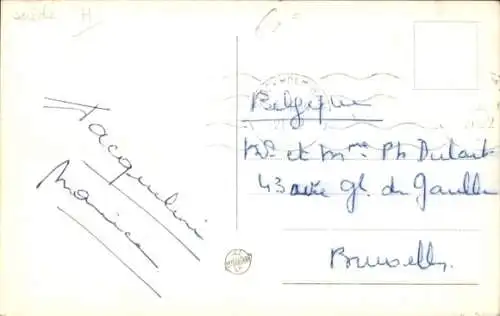 suède H
Jacqueline
Maurice
Belgique
Mr et Mme Ph Dutoit
43 ave Gl. du Gaulle
Bruxelles.